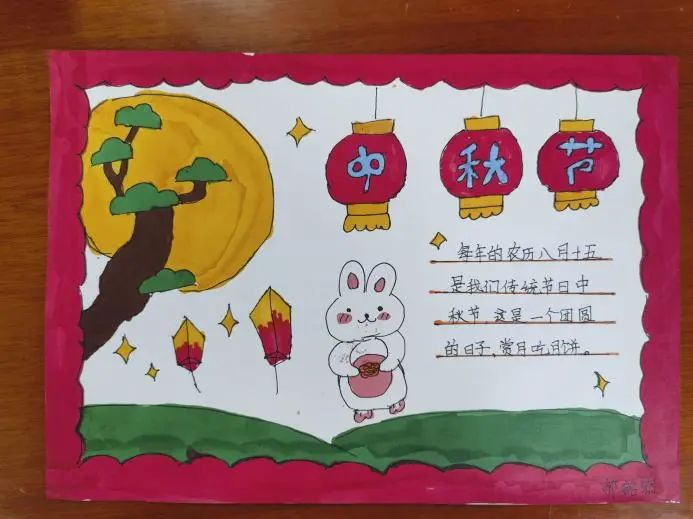 中秋节
每年的农历八月十五
是我们传统节日中
秋节,这是一个团圆
的日子,赏月吃月饼。